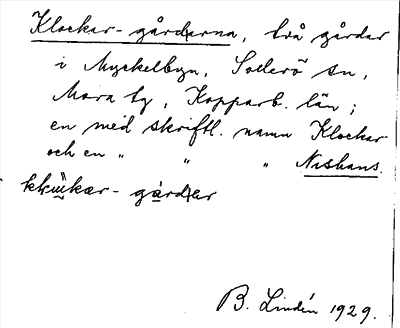 Klockar-gårdarna, två gårdar
i Myckelbyn, Sollerö sn,
Mora tg, Kopparb. län;
en med skriftl. namn Klockar
och en „ „ „ Nishans.
gårder
B. Lindén 1929.